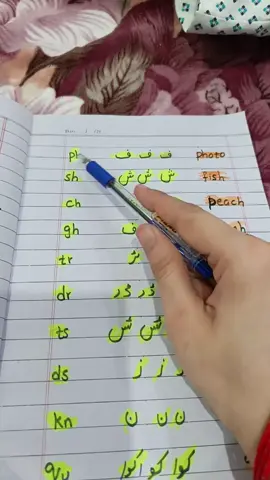 ph ف ف ف photo
sh ش ش ش fish
ch peach
gh ف
tr
dr ڈر ڈر
ts ٹس ٹس
ds ز ز
kn ن ن ن
qu کوا کوا کوا